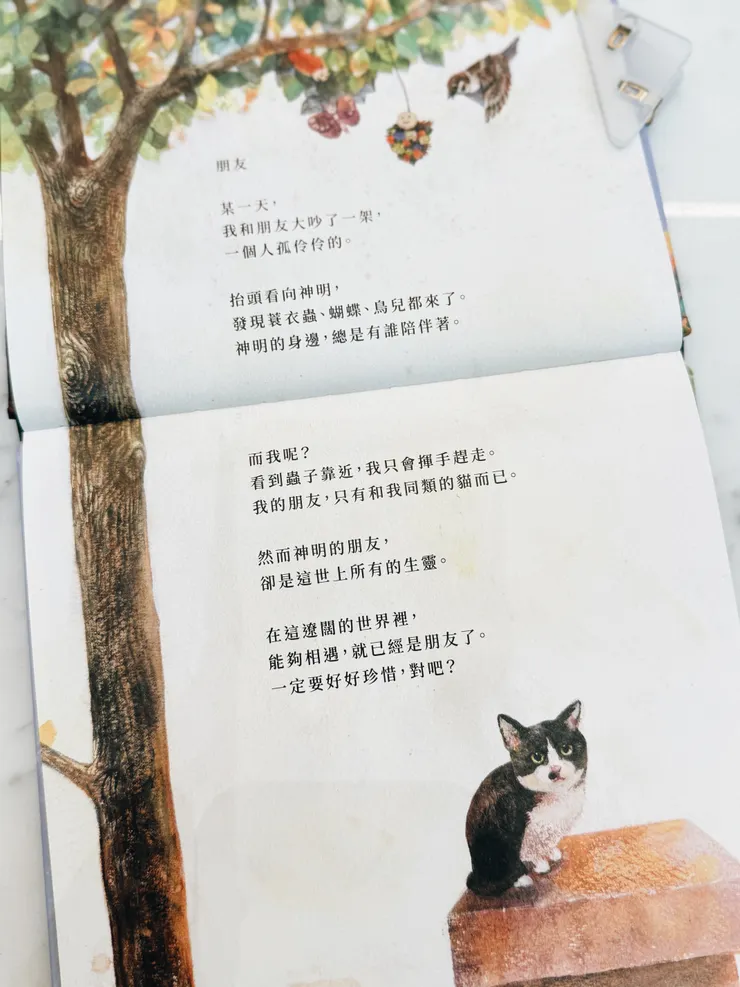 朋友
某一天，
我和朋友大吵了一架，
一個人孤伶伶的。
抬頭看向神明，
發現蓑衣蟲、蝴蝶、鳥兒都來了。
神明的身邊，總是有誰陪伴著。
而我呢？
看到蟲子靠近，我只會揮手趕走。
我的朋友，只有和我同類的貓而已。
然而神明的朋友，
卻是這世上所有的生靈。
在這遼闊的世界裡，
能夠相遇，就已經是朋友了。
一定要好好珍惜，對吧？